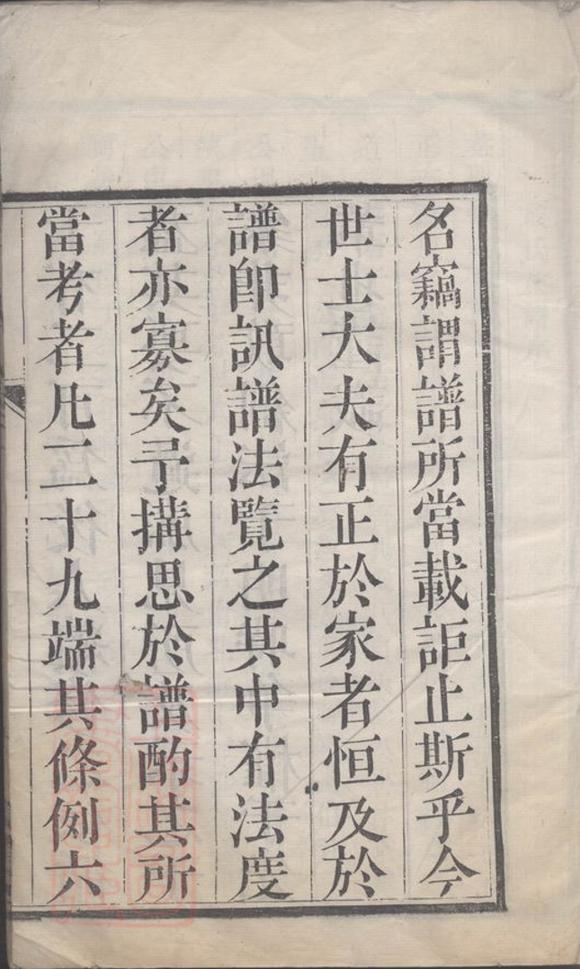 名竊謂譜所當載詎止斯乎今
世士大夫有正於家者恒及於
譜卽訊譜法覽之其中有法度
者亦寡矣予搆思於譜酌其所
當考者凡二十九端其條例六